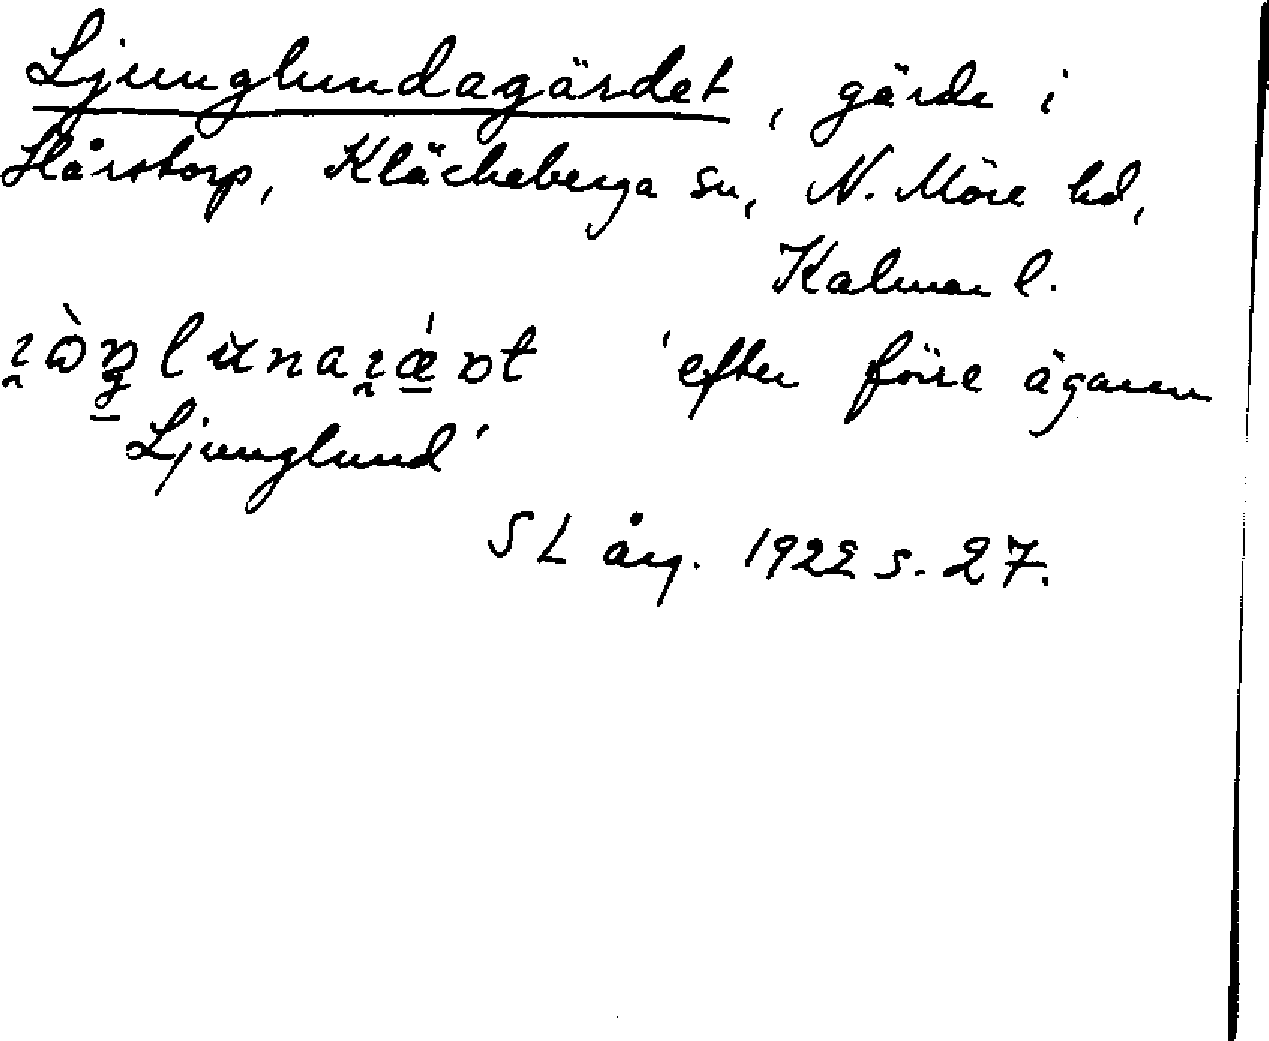 Ljunglundagärdet, gärde i
Hårstorp, Kläckeberga sn, N. Möre hd,
Kalmar l.
'efter förre ägaren
Ljunglund'
SL årg. 1922 s. 27.